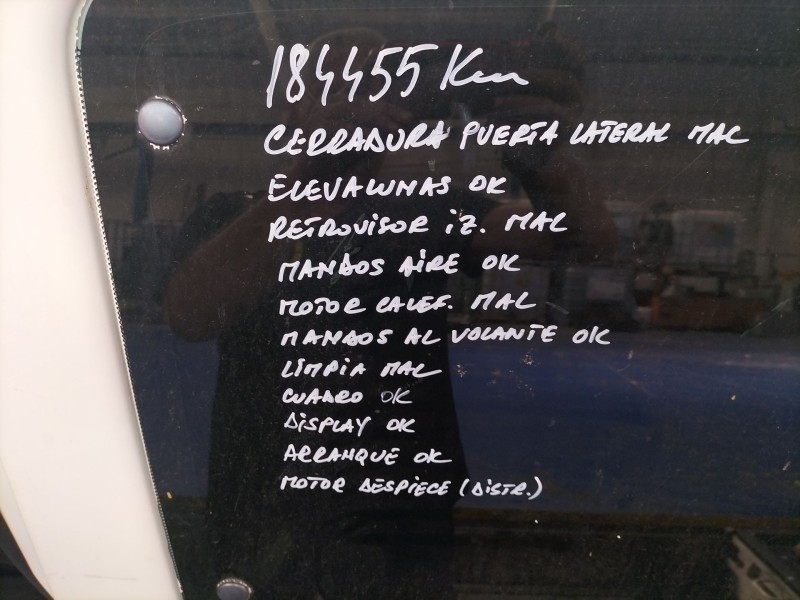 184455 Km
CERRADURA PUERTA LATERAL MAL
ELEVALUNAS OK
RETROVISOR iZ. MAL
MANDOS AIRE OK
MOTOR CALEF. MAL
MANDOS AL VOLANTE OK
LIMPIA MAL
CUADRO OK
DISPLAY OK
ARRANQUE OK
MOTOR DESPIECE (DISTR.)